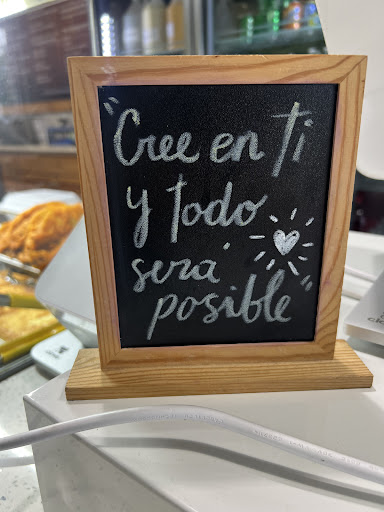 "Cree en ti
y todo
será
posible"